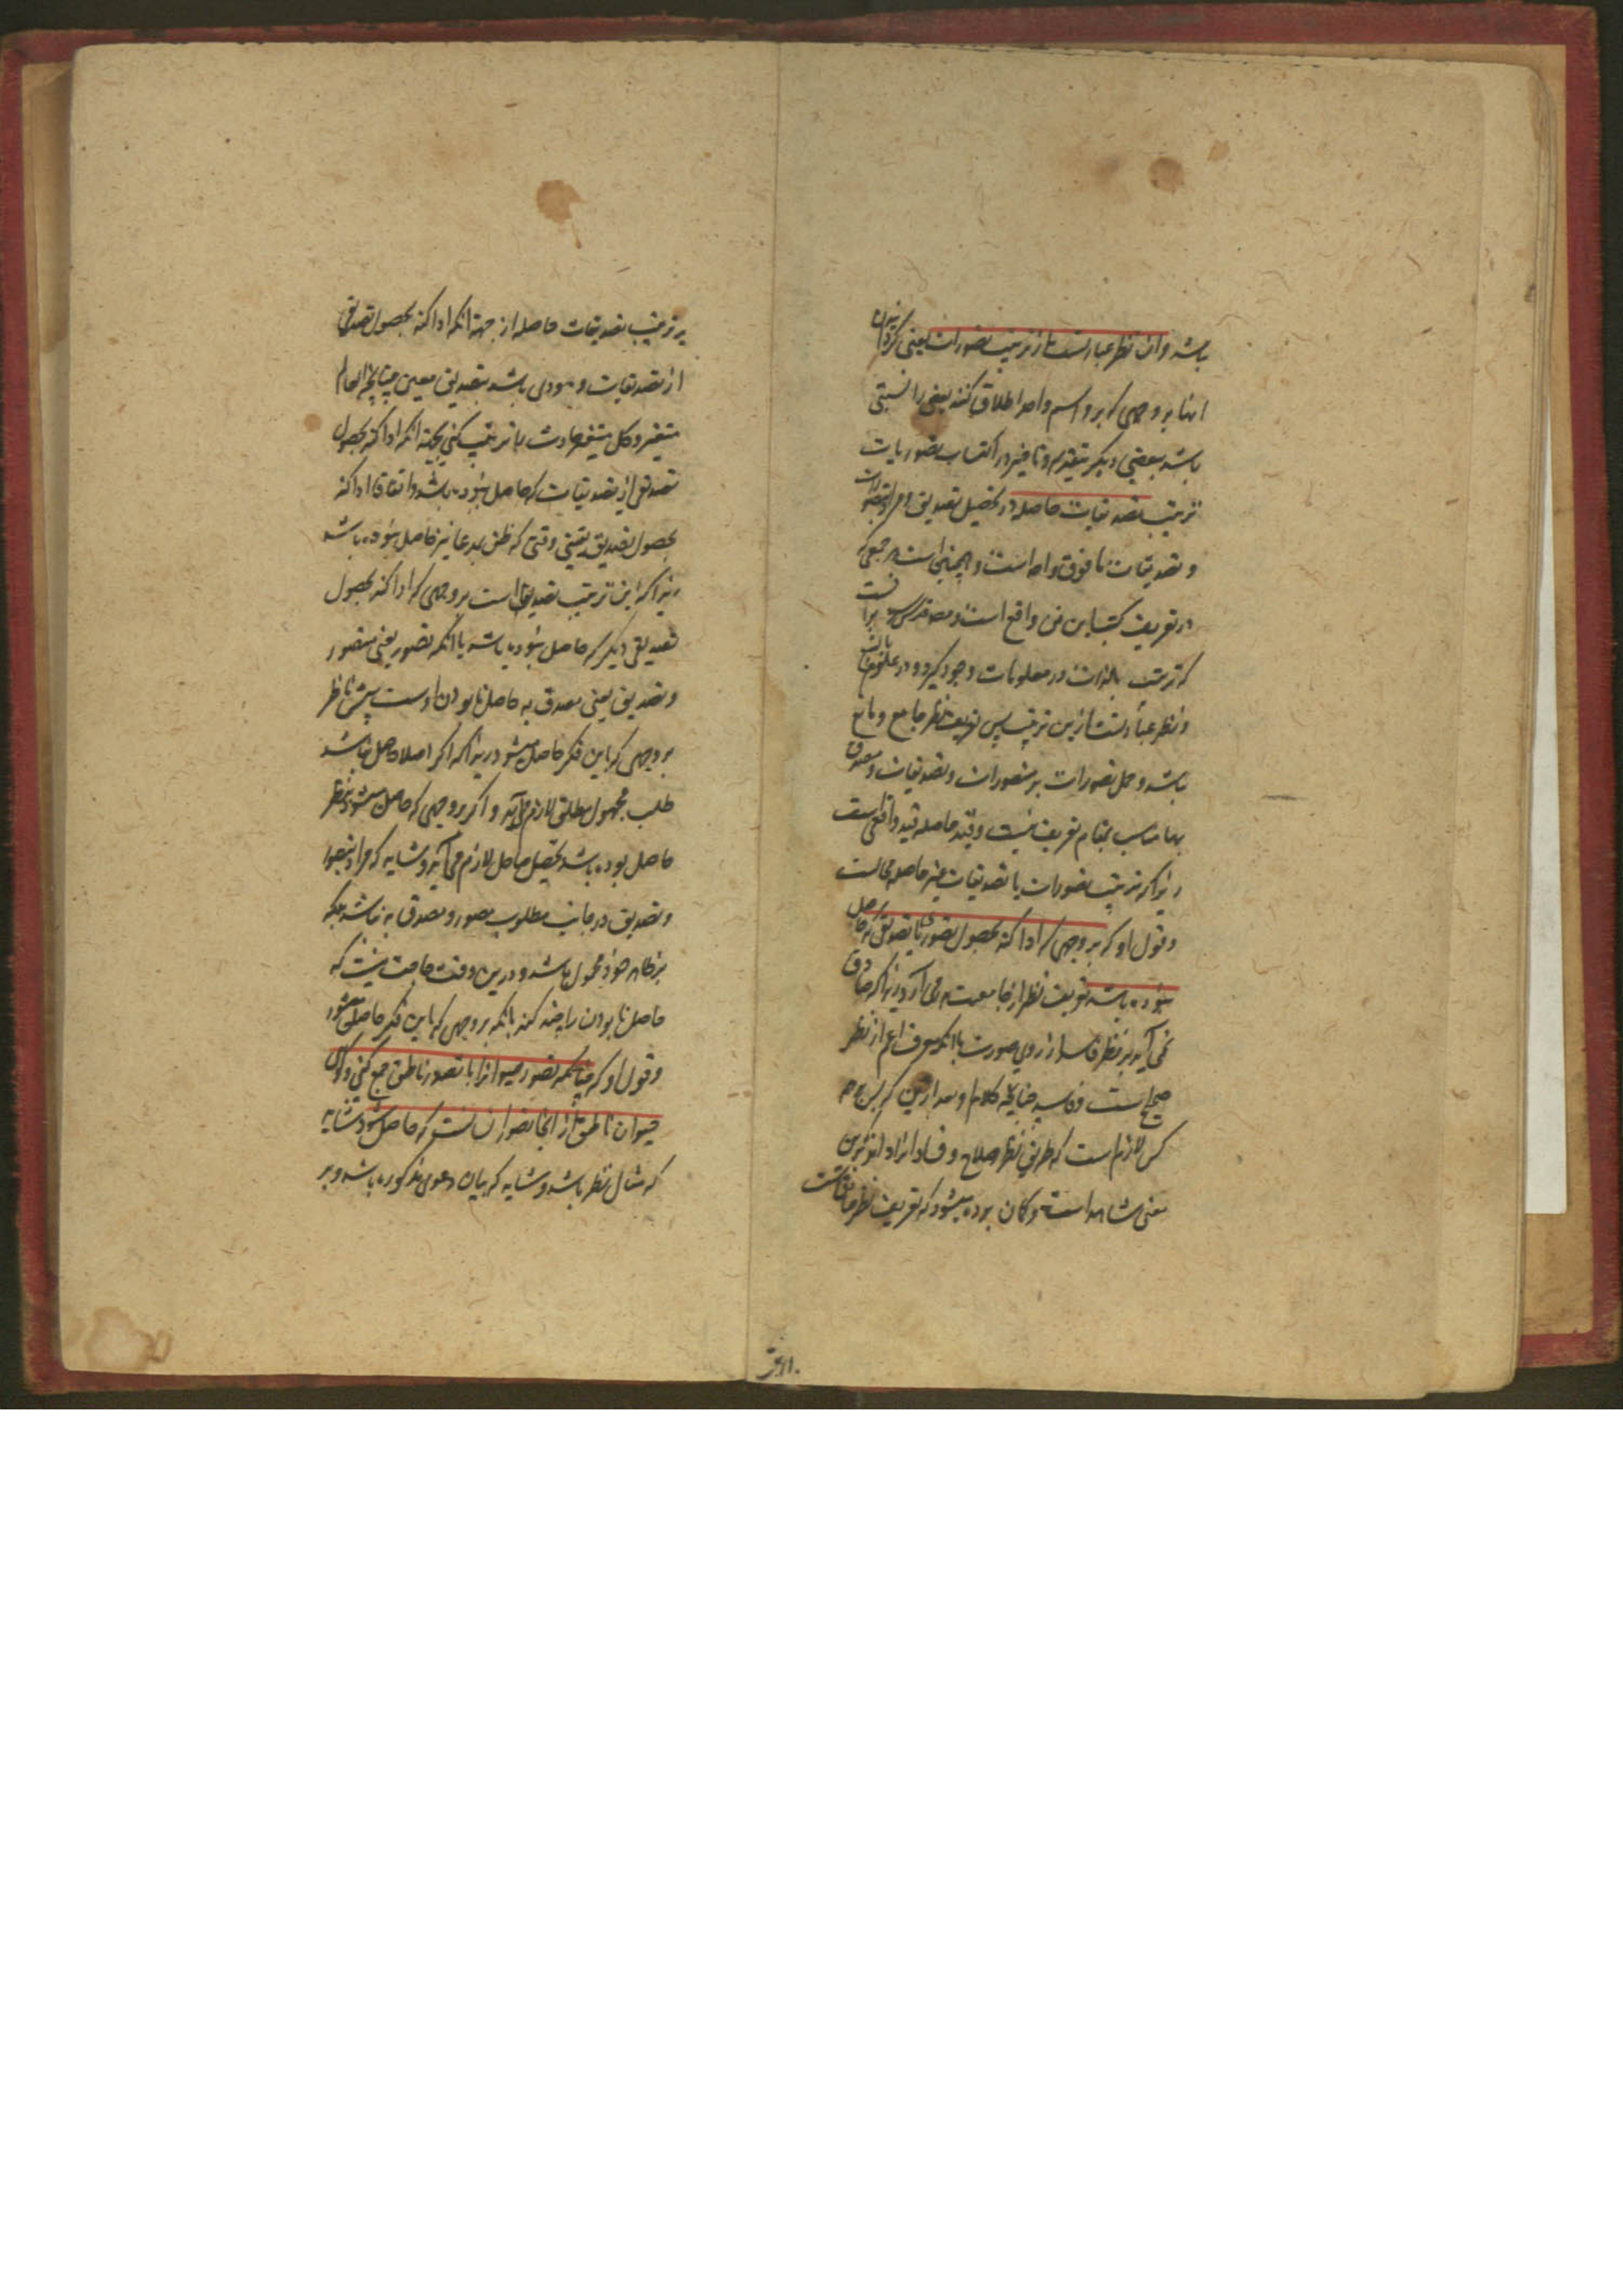 باشد و ان نظر عبارتست از ترتیب تصورات یعنی گردانیدن
اینها بر وجهی که برو اسم واحد اطلاق کنند بعضی را نسبتی
باشد ببعضی دیگر بتقدم و تاخیر در اکتساب تصوریات
ترتیب تصدیقات حاصله در تحصیل تصدیق و مراد بتصورات
و تصدیقات ما فوق واحد است و همچنین است هر جمعی که
در تعریف کتب این فن واقع است
که ترتیب بالذات در معلومات وجود گیرد و در علوم
و نظر عبارتست ازین ترتیب پس تعریف نظر جامع و مانع
باشد و حمل تصورات بر متصورات و تصدیقات و مصدق
بها مناسب بمقام تعریف نیست و قید حاصله قید واقعی است
زیرا که ترتیب تصورات یا تصدیقات غیر حاصله محالست
و قول او که بر وجهی که ادا کند بحصول تصوری یا تصدیقی که حاصل
نبوده باشد تعریف نظر از جامعیت می آرد زیرا که صادق
نمی آید بر نظر فاسد از روی صورت با انکه معرف اعم از نظر
صحیح است و فاسد چنانچه کلام او بعد ازین که پس بر هر
کس لازم است که طریق نظر و صلاح و فساد انرا داند برین
معنی شاهد است و گمان برده میشود که تعریف نظر
بر ترتیب تصدیقات حاصله از جهة انکه ادا کند بحصول تصدیقی
از تصدیقات و مودی باشد بتصدیق معین چنانچه العالم
متغیر و کل متغیر حادث با ترتیب کنی بجهة انکه ادا کند بحصول
تصدیقی از تصدیقات که حاصل نبوده باشد و اتفاقا ادا کند
بحصول تصدیق یقینی وقتی که ظن بمدعا نیز حاصل نبوده باشد
زیرا که این ترتیب تصدیقاتست بر وجهی که ادا کند بحصول
تصدیقی دیگر که حاصل نبوده باشد با انکه تصور یعنی متصور
و تصدیق یعنی مصدق به حاصل نابودن اوست پیش ناظر
بر وجهی که باین فکر حاصل میشود زیرا که اگر اصلا حاصل نباشد
طلب مجهول مطلق لازم می آید و اگر بر وجهی که حاصل میشود بنظر
حاصل بوده باشد تحصیل حاصل لازم می آید و شاید که مراد بتصور
و تصدیق در جانب مطلوب متصور و مصدق به نباشد بلکه
بر ظاهر خود محمول باشد و درین وقت حاجت نیست که
حاصل نابودن را قید کنند بانکه بر وجهی که باین فکر حاصل میشود
و قول او که چنانکه تصور حیوانرا با تصور ناطق جمع کنی و گوئی
حیوان ناطق از انجا تصور انسان که حاصل شود شاید
که مثال نظر باشد و شاید که بیان دعوی مذکوره باشد و بر